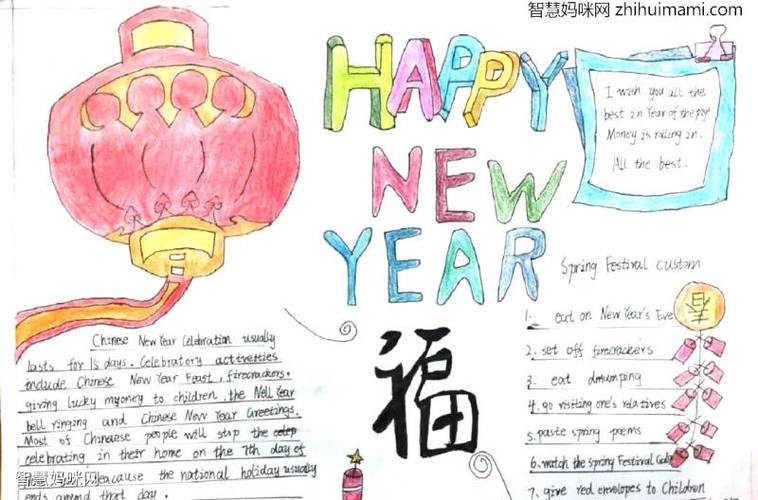 智慧妈咪网 zhihuimami.com
HAPPY
NEW
YEAR
I wish you all the
best in Year of the pig!
Money is rolling in.
All the best.
Spring Festival custom
1. eat on New Year's Eve
2. set off firecrackers
3. eat dmumping
4. go visiting one's relatives
5. paste spring poems
6. match the Spring Festival Gala
7. give red envelopes to Children
福
Chinese New Year Celebration usually
lasts for 15 days. Celebratory activeties
include Chinese New Year Feast, firecrackers.
giving lucky myoney to children, the Nell Year
bell ringing and Chinese New Year Greetings.
Most of Chineaese people will stop the
celebrating in their home on the 7th day of
beacause the national holiday usually
ends around that day.
智慧妈咪网